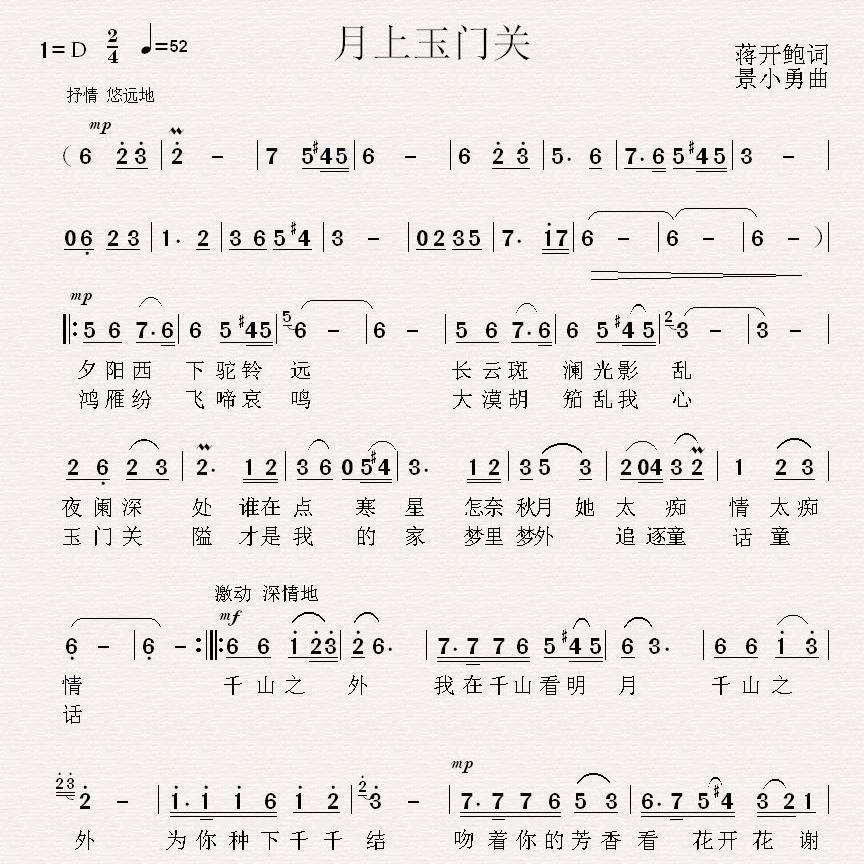 月上玉门关
1=D 2/4 ♩=52
蒋开鲍词
景小勇曲
抒情 悠远地
mp
( 6 2 3 | 2 - | 7 5 #4 5 | 6 - | 6 2 3 | 5. 6 | 7. 6 5 #4 5 | 3 - |
0 6 2 3 | 1. 2 | 3 6 5 #4 | 3 - | 0 2 3 5 | 7. 1 7 | 6 - | 6 - | 6 - ) |
mp
‖: 5 6 7. 6 | 6 5 #4 5 | 5 6 - | 6 - | 5 6 7. 6 | 6 5 #4 5 | 2 3 - | 3 - |
夕阳西 下驼铃 远 长云斑 澜光影 乱
鸿雁纷 飞啼哀 鸣 大漠胡 笳乱我 心
2 6 2 3 | 2. 1 2 | 3 6 0 5 #4 | 3. 1 2 | 3 5 3 | 2 0 4 3 2 | 1 2 3 |
夜阑深 处 谁在点 寒 星 怎奈秋月 她太 痴 情太痴
玉门关 隘 才是我 的 家 梦里梦外 追逐童 话童
激动 深情地
mf
6 - | 6 - :‖: 6 6 1 2 3 | 2 6. | 7. 7 7 6 5 #4 5 | 6 3. | 6 6 1 3 |
情 千山之 外 我在千山看明 月 千山之
话
mp
2 3 2 - | 1. 1 1 6 1 2 | 2 3 - | 7. 7 7 6 5 3 | 6. 7 5 #4 3 2 1 |
外 为你种下千千 结 吻着你的芳香 看 花开花 谢